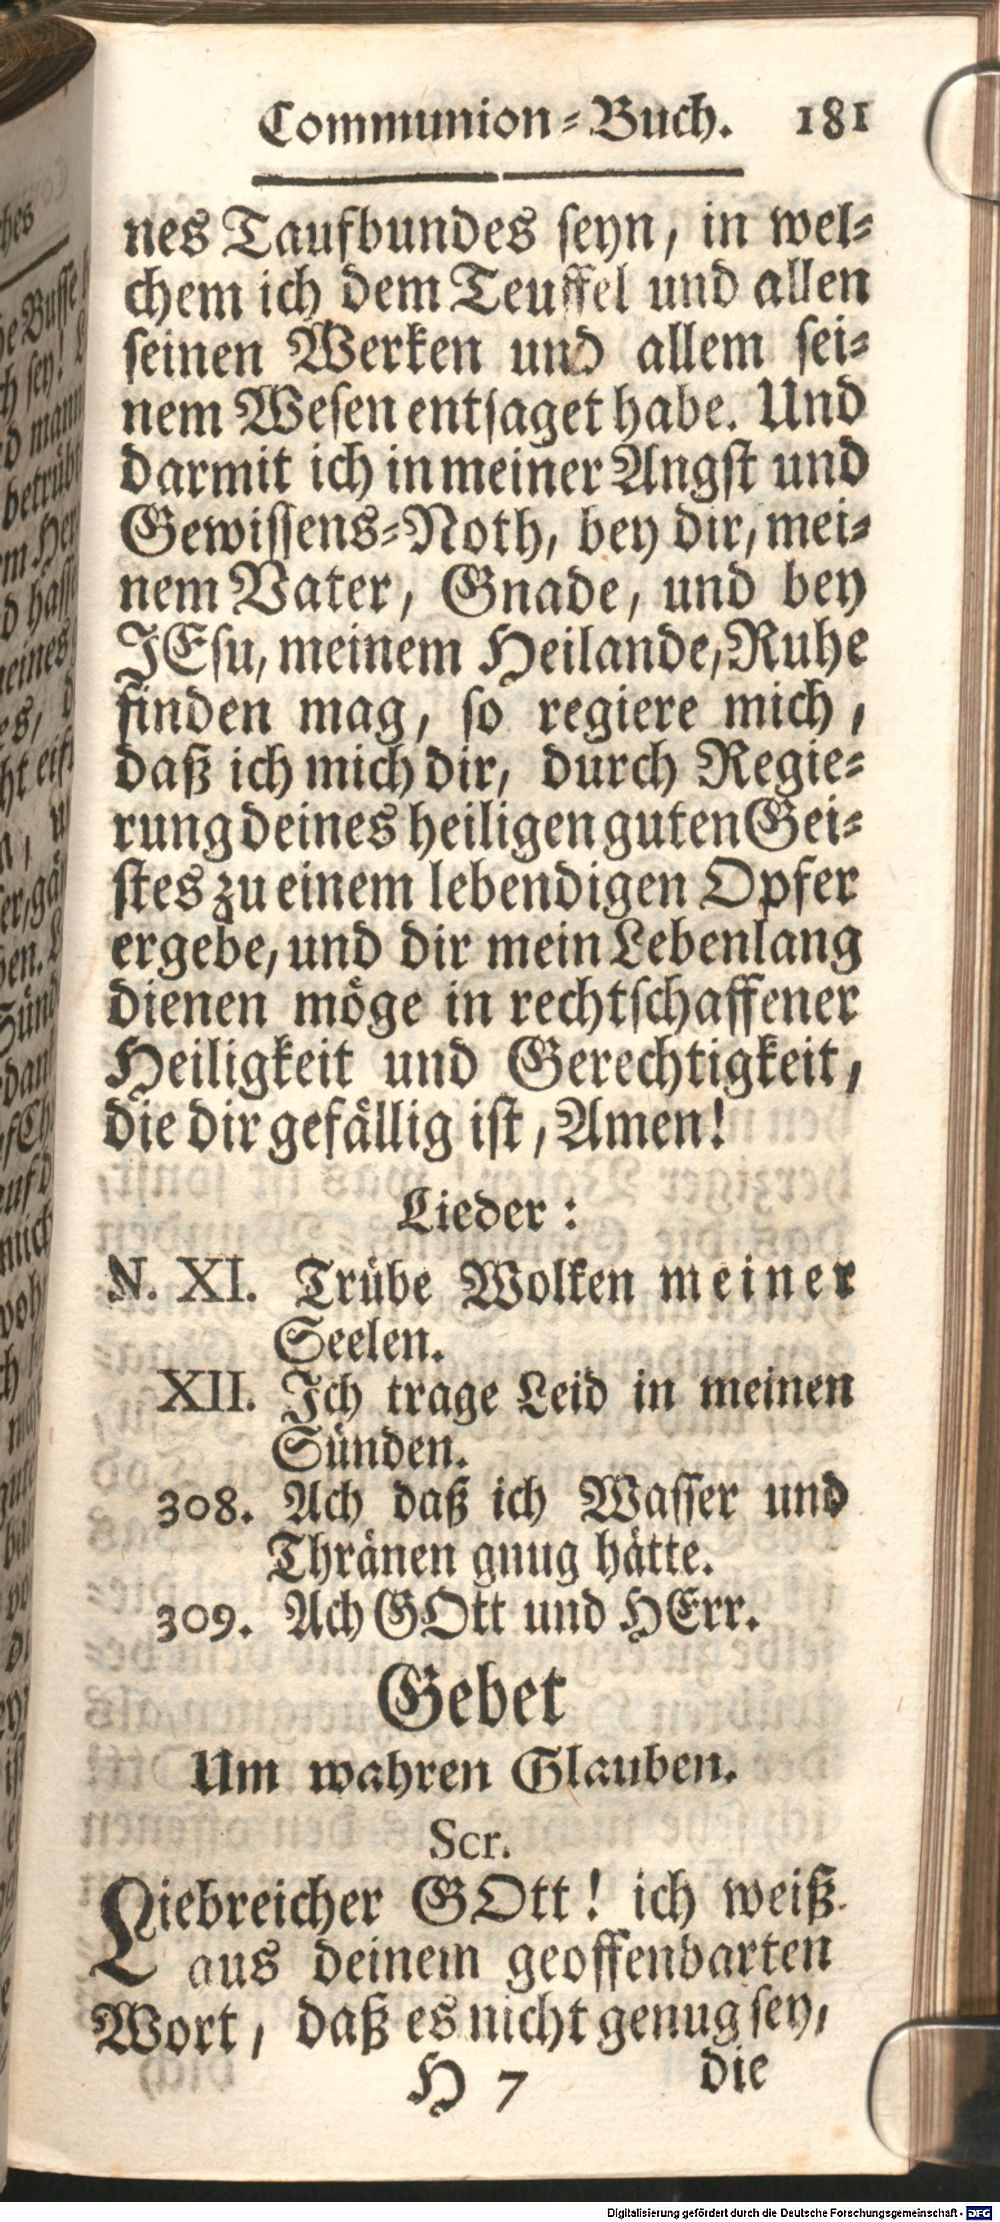 Communion-Buch. 181
nes Taufbundes seyn, in wel-
chem ich dem Teuffel und allen
seinen Werken und allem sei-
nem Wesen entsaget habe. Und
darmit ich in meiner Angst und
Gewissens-Noth, bey dir, mei-
nem Vater, Gnade, und bey
JEsu, meinem Heilande, Ruhe
finden mag, so regiere mich,
daß ich mich dir, durch Regie-
rung deines heiligen guten Gei-
stes zu einem lebendigen Opfer
ergebe, und dir mein Lebenlang
dienen möge in rechtschaffener
Heiligkeit und Gerechtigkeit,
die dir gefällig ist, Amen!
Lieder:
N. XI. Trübe Wolken meiner
Seelen.
XII. Ich trage Leid in meinen
Sünden.
308. Ach daß ich Wasser und
Thränen gnug hätte.
309. Ach GOtt und HErr.
Gebet
Um wahren Glauben.
Scr.
Liebreicher GOtt! ich weiß
aus deinem geoffenbarten
Wort, daß es nicht genug sey,
H 7 die
Digitalisierung gefördert durch die Deutsche Forschungsgemeinschaft - DFG